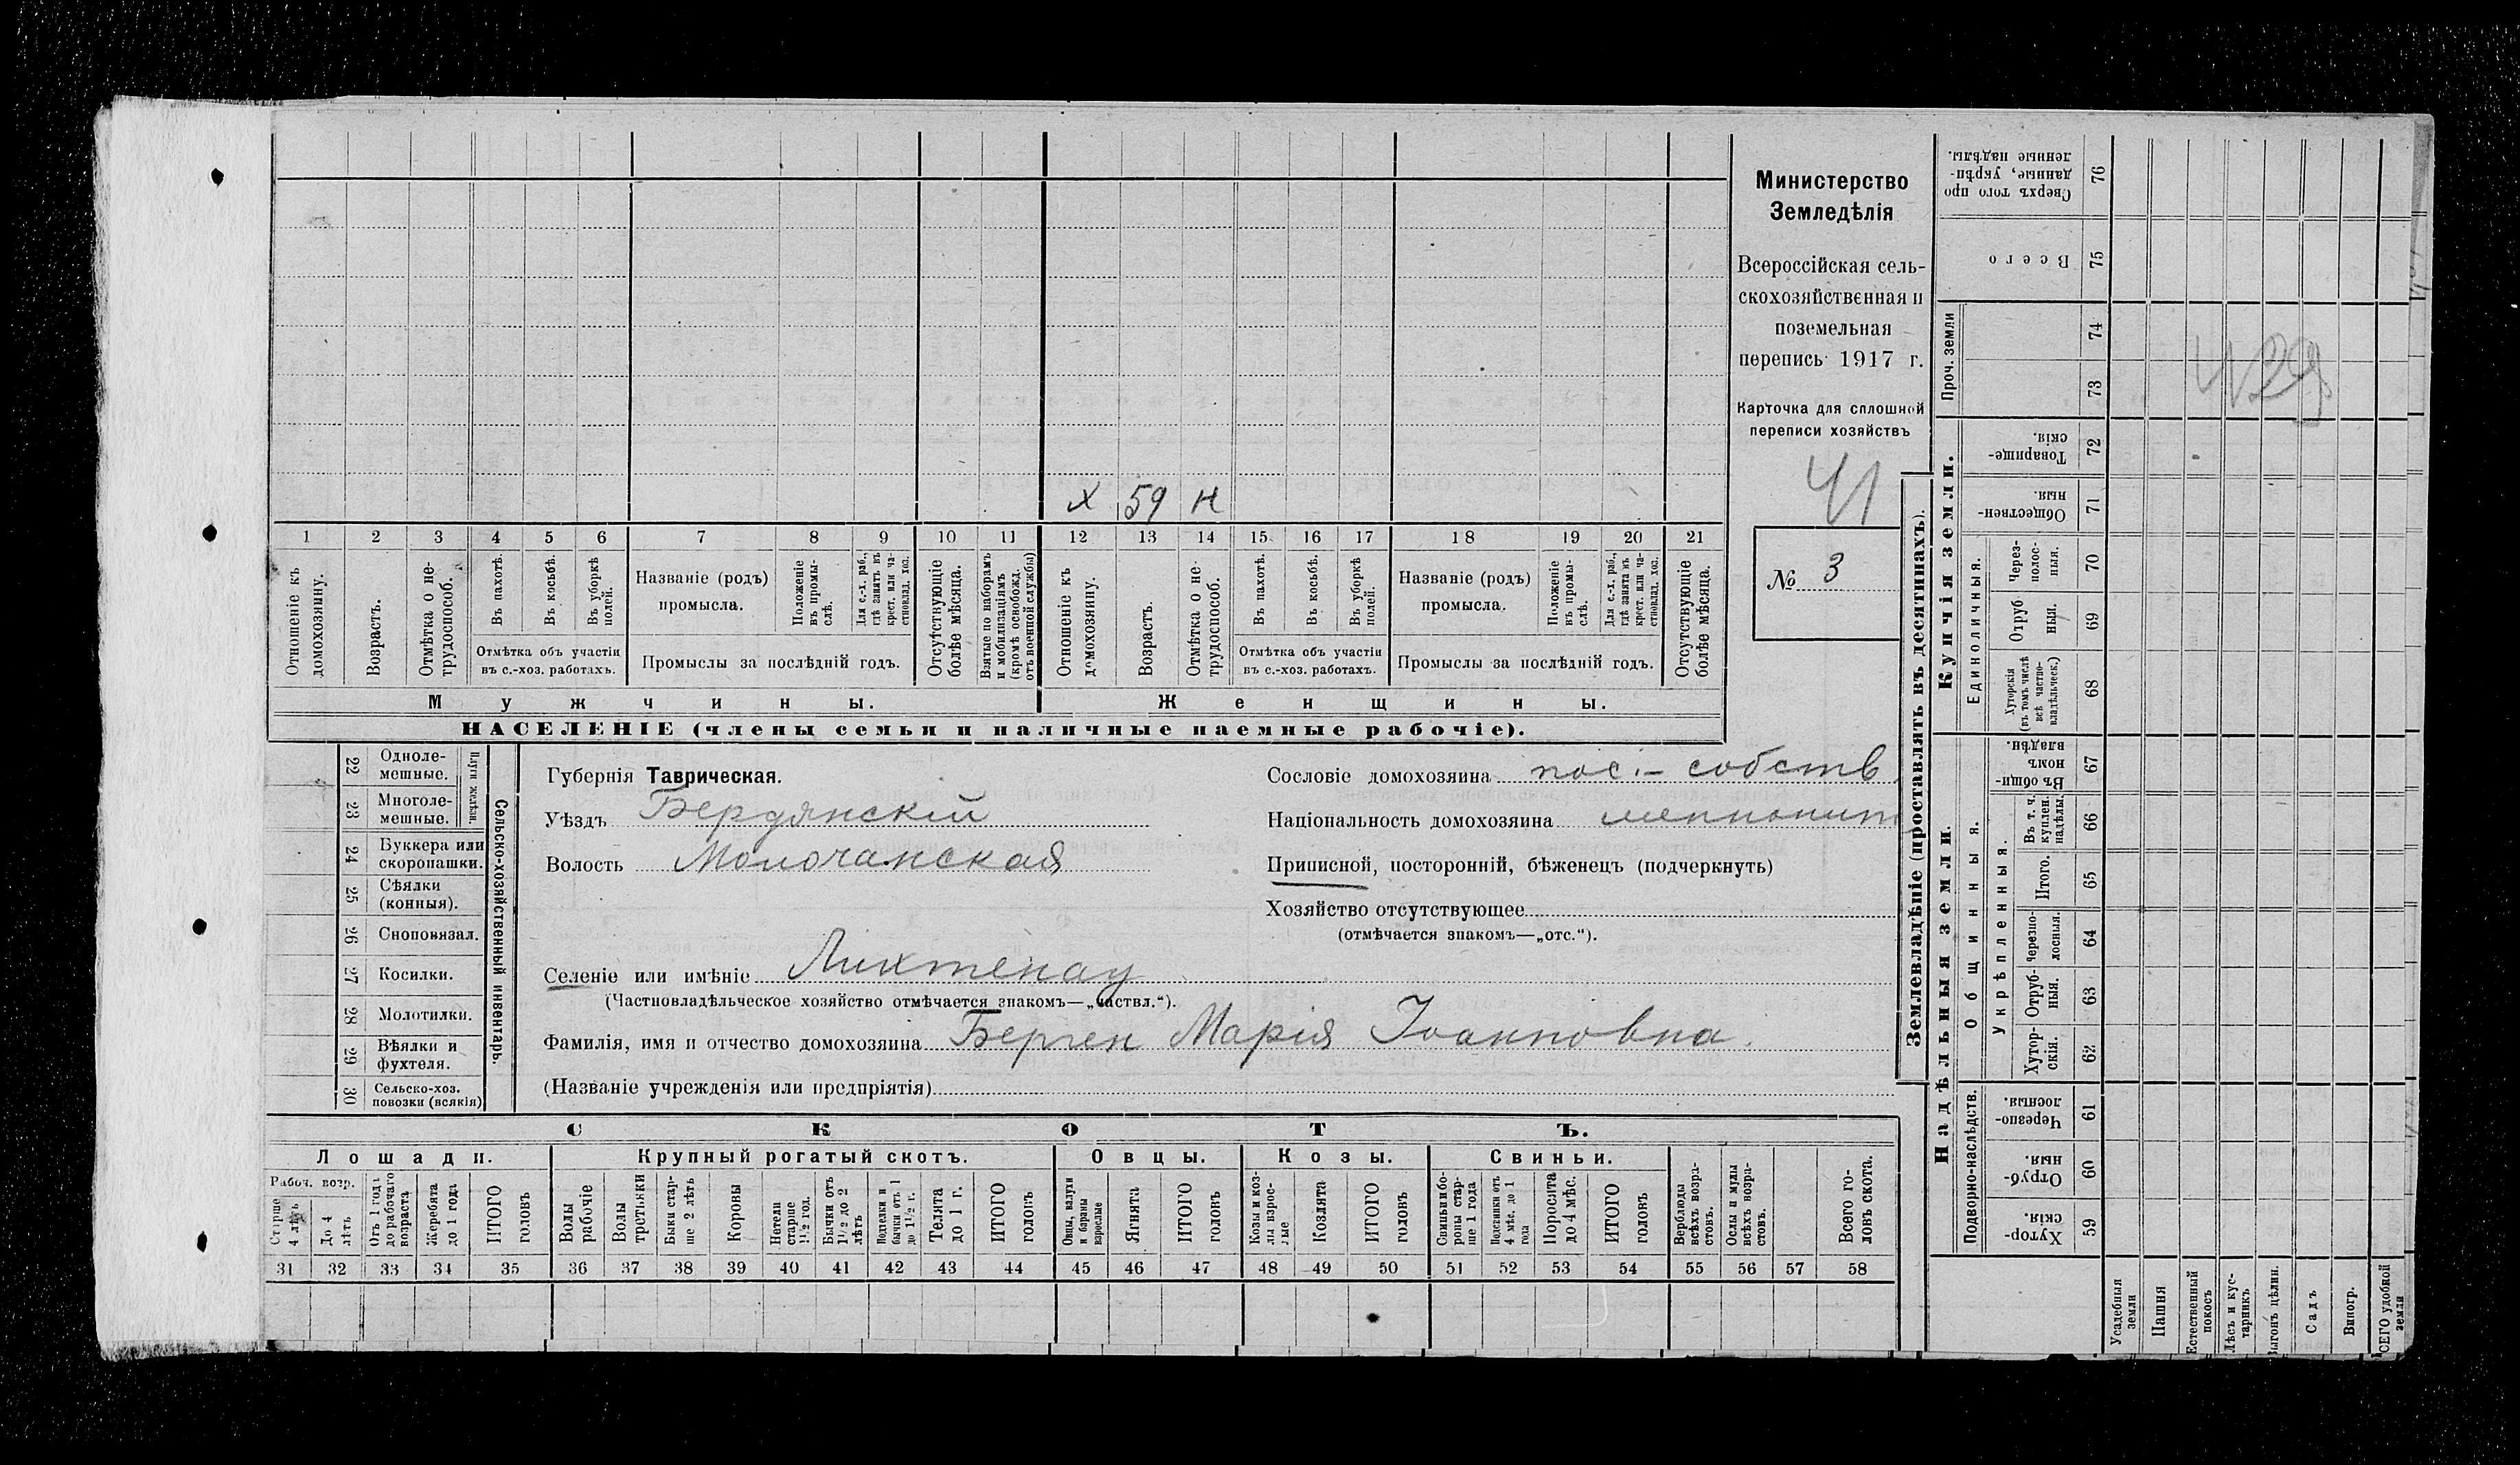 Министерство
Земледѣлія
Всероссійская сель-
скохозяйственная и
поземельная
перепись 1917 г.
Карточка для сплошной
переписи хозяйствъ
41
№ 3
х 59 н
1 2 3 4 5 6 7 8 9 10 11 12 13 14 15 16 17 18 19 20 21
Отношеніе къ домохозяину.
Возрастъ.
Отмѣтка о не-трудоспособ.
Въ пахотѣ.
Въ косьбѣ.
Въ уборкѣ полей.
Отмѣтка объ участіи
въ с.-хоз. работахъ.
Названіе (родъ)
промысла.
Положеніе въ промы-слѣ.
Для с.-х. раб., гдѣ занятъ въ крест. или ча-стновлад. хоз.
Промыслы за послѣдній годъ.
Отсутствующіе болѣе мѣсяца.
Взятые по наборамъ и мобилизаціямъ (кромѣ освобожд. отъ военной службы)
Отношеніе къ домохозяину.
Возрастъ.
Отмѣтка о не-трудоспособ.
Въ пахотѣ.
Въ косьбѣ.
Въ уборкѣ полей.
Отмѣтка объ участіи
въ с.-хоз. работахъ.
Названіе (родъ)
промысла.
Положеніе въ промы-слѣ.
Для с.-х. раб., гдѣ занята въ крест. или ча-стновлад. хоз.
Промыслы за послѣдній годъ.
Отсутствующіе болѣе мѣсяца.
Мужчины. Женщины.
НАСЕЛЕНІЕ (члены семьи и наличные наемные рабочіе).
Сельско-хозяйственный инвентарь.
Плуги желѣзн.
22 Одноле-мешные.
23 Многоле-мешные.
24 Буккера или скоропашки.
25 Сѣялки (конныя).
26 Сноповязал.
27 Косилки.
28 Молотилки.
29 Вѣялки и фухтеля.
30 Сельско-хоз. повозки (всякія)
Губернія Таврическая.
Уѣздъ Бердянскій
Волость Молочанская
Селеніе или имѣніе Лихтенау
(Частновладѣльческое хозяйство отмѣчается знакомъ—„частвл.“).
Сословіе домохозяина пос.- собств
Національность домохозяина меннонит
Приписной, посторонній, бѣженецъ (подчеркнуть)
Хозяйство отсутствующее
(отмѣчается знакомъ—„отс.“).
Фамилія, имя и отчество домохозяина Берген Марія Іоанновна.
(Названіе учрежденія или предпріятія)
СКОТЪ.
Лошади. Крупный рогатый скотъ. Овцы. Козы. Свиньи.
Рабоч. возр.
Старше 4 лѣтъ
До 4 лѣтъ
Отъ 1 года до рабочаго возраста
Жеребята до 1 года
ИТОГО головъ
Волы рабочіе
Волы третьяки
Быки стар-ше 2 лѣтъ
Коровы
Нетели старше 1½ год.
Бычки отъ 1½ до 2 лѣтъ
Подтелки и бычки отъ 1 до 1½ г.
Телята до 1 г.
ИТОГО головъ
Овцы, валухи и бараны взрослые
Ягнята
ИТОГО головъ
Козы и коз-лы взрос-лые
Козлята
ИТОГО головъ
Свиньи и бо-ровы стар-ше 1 года
Подсвинки отъ 4 мѣс. до 1 года
Поросята до 4 мѣс.
ИТОГО головъ
Верблюды всѣхъ возра-стовъ.
Ослы и мулы всѣхъ возра-стовъ.
Всего го-ловъ скота.
31 32 33 34 35 36 37 38 39 40 41 42 43 44 45 46 47 48 49 50 51 52 53 54 55 56 57 58
Землевладѣніе (проставлять въ десятинахъ).
Надѣльныя земли.
Купчія земли.
Проч. земли
Подворно-наслѣдств.
Общинныя.
Укрѣпленныя.
Единоличныя.
Сверхъ того про-данные, укрѣп-ленные надѣлы. 76
Всего 75
74
73
Товарище-скія. 72
Обществен-ныя. 71
Через-полос-ныя. 70
Отруб-ныя. 69
Хуторскія (въ томъ числѣ всѣ частно-владѣльческ.) 68
Въ общин-номъ владѣн. 67
Въ т. ч. куплен. надѣлы. 66
Итого. 65
Черезпо-лосныя. 64
Отруб-ныя. 63
Хутор-скія. 62
Черезпо-лосныя. 61
Отруб-ныя. 60
Хутор-скія. 59
Усадебныя земли
Пашня
Естественный покосъ
Лѣсъ и кус-тарникъ
Выгонъ цѣлин.
Садъ
Виногр.
ВСЕГО удобной земли